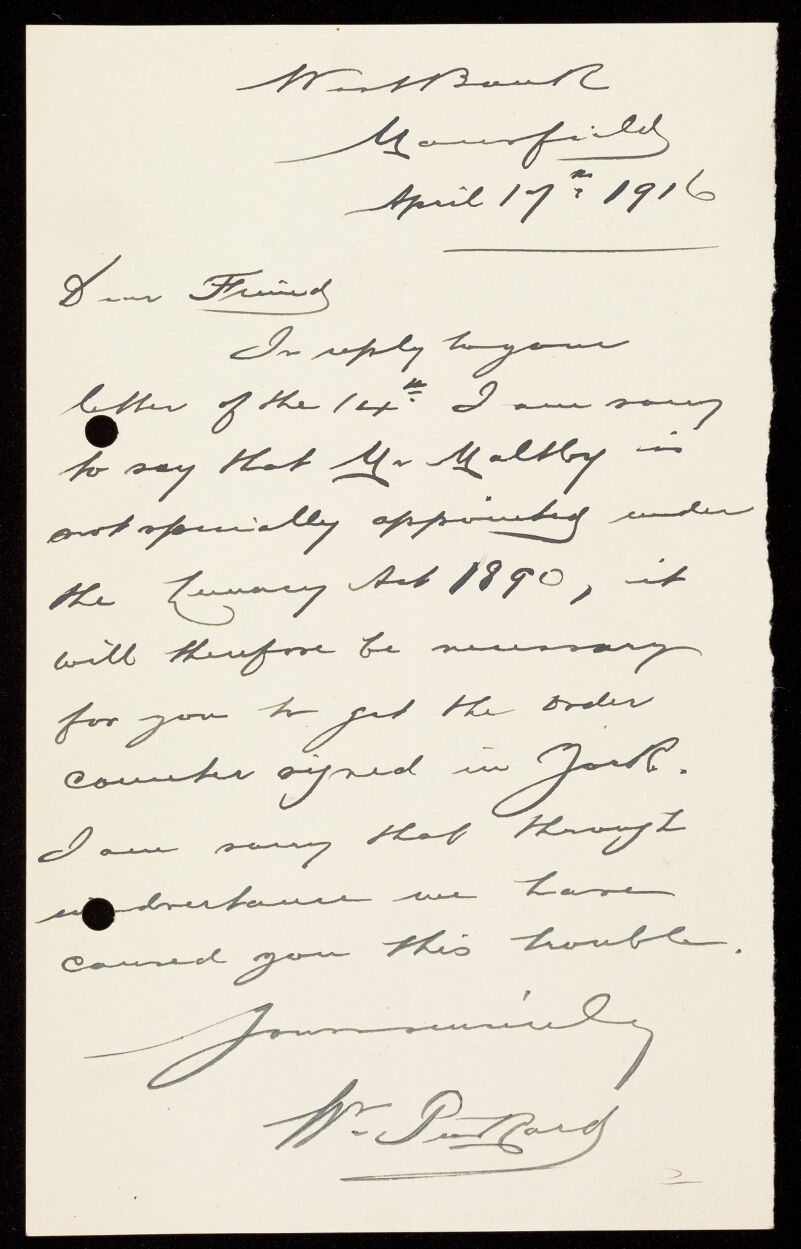 West Bank
Mansfield
April 17th 1916
Dear Friend
In reply to your
letter of the 14th I am sorry
to say that Mr Maltby is
not specially appointed under
the Lunacy Act 1890, it
will therefore be necessary
for you to get the order
counter signed in York.
I am sorry that through
inadvertance we have
caused you this trouble.
Yours sincerely
Wm